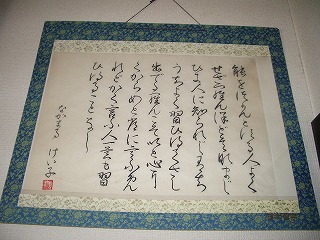 能をつかんとする人よく
せざらんほどはなまじ
ひに人に知られじうち
うちよく習ひ得てさし
出でたらんこそいと心に
くからめと常に言ふめ
れどかく言ふ人一芸も習
ひ得ることなし
けい子